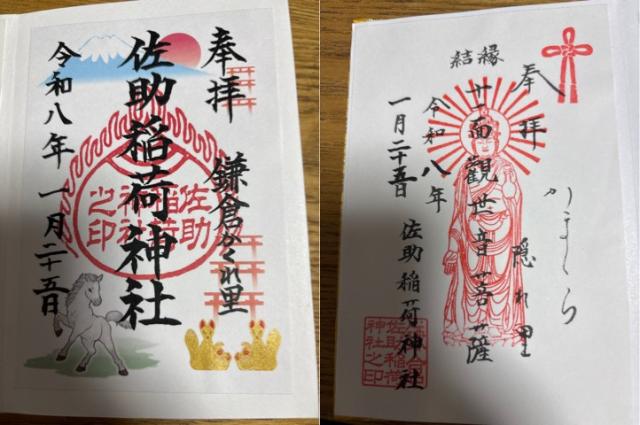 奉拝
鎌倉かくれ里
佐助稲荷神社
令和八年 一月二十五日
佐助
稲荷
神社
之印
奉拝
かまくら
隠れ里
結縁
十一面観世音菩薩
佐助稲荷神社
令和八年
一月二十五日
佐助稲荷
神社之印